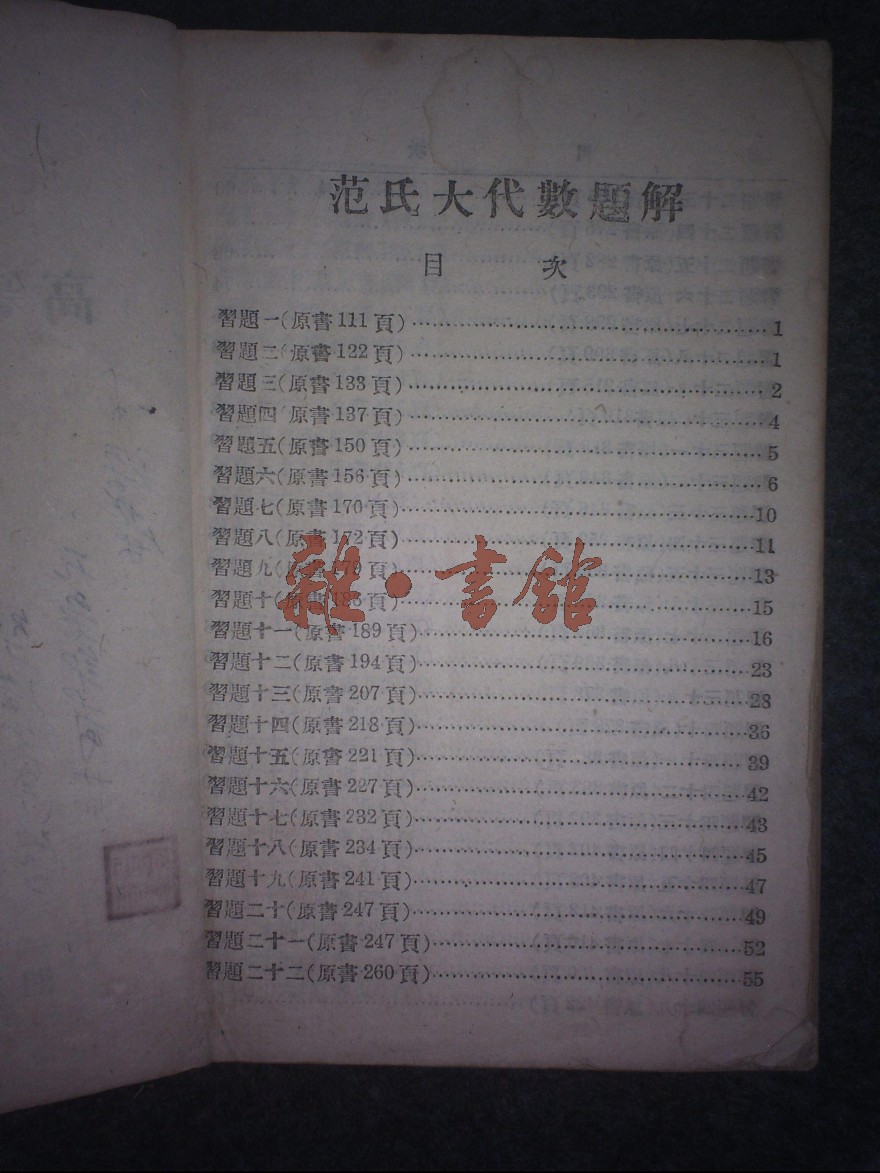 范氏大代數題解
目 次
習題一(原書111頁)……1
習題二(原書122頁)……1
習題三(原書133頁)……2
習題四(原書137頁)……4
習題五(原書150頁)……5
習題六(原書156頁)……6
習題七(原書170頁)……10
習題八(原書172頁)……11
習題九(原書179頁)……13
習題十(原書 頁)……15
習題十一(原書189頁)……16
習題十二(原書194頁)……23
習題十三(原書207頁)……28
習題十四(原書218頁)……36
習題十五(原書221頁)……39
習題十六(原書227頁)……42
習題十七(原書232頁)……43
習題十八(原書234頁)……45
習題十九(原書241頁)……47
習題二十(原書247頁)……49
習題二十一(原書247頁)……52
習題二十二(原書260頁)……55
雜·書館
高